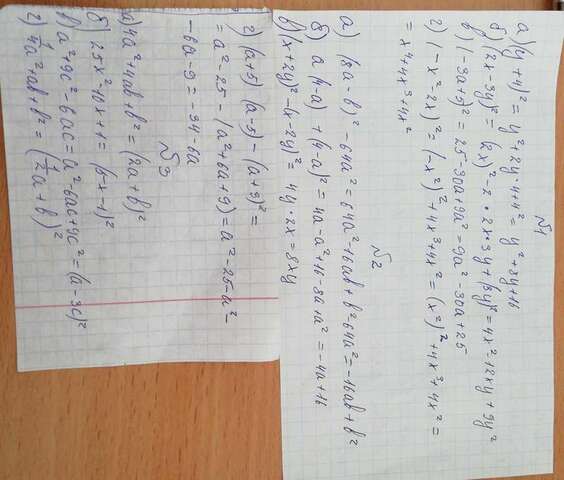 №1
а) (y+4)² = y²+2y·4+4² = y²+8y+16
б) (2x-3y)² = (2x)²-2·2x·3y+(3y)² = 4x²-12xy+9y²
в) (-3a+5)² = 25-30a+9a² = 9a²-30a+25
г) (-x²-2x)² = (-x²)²+4x³+4x² = (x²)²+4x³+4x² =
= x⁴+4x³+4x²
№2
а) (8a-b)²-64a² = 64a²-16ab+b²-64a² = -16ab+b²
б) a(4-a)+(4-a)² = 4a-a²+16-8a+a² = -4a+16
в) (x+2y)²-(x-2y)² = 4y·2x = 8xy
г) (a+5)(a-5)-(a+3)² =
= a²-25-(a²+6a+9) = a²-25-a²-
-6a-9 = -34-6a
№3
а) 4a²+4ab+b² = (2a+b)²
б) 25x²-10x+1 = (5x-1)²
в) a²+9c²-6ac = a²-6ac+9c² = (a-3c)²
г) 1/4a²+ab+b² = (1/2a+b)²